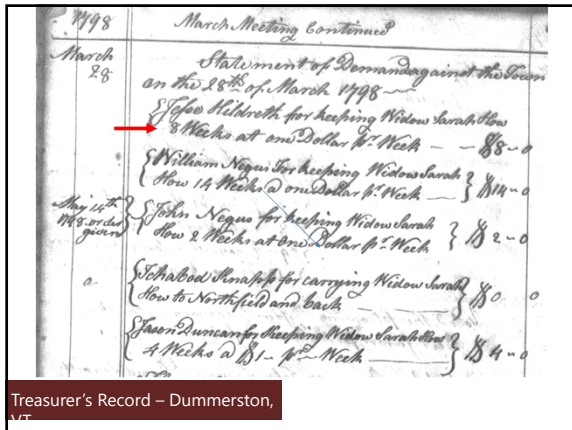 1798 March Meeting Continued
March
28
Statement of Demand against the Town
on the 28th of March 1798
Jesse Hildreth for keeping Widow Sarah How
8 Weeks at one Dollar pr. Week — — $8-0
William Negus For keeping Widow Sarah
How 14 Weeks @ one Dollar pr. Week — $14-0
May 14th
1798 order
given
John Negus for keeping Widow Sarah
How 2 Weeks at one Dollar pr. Week $2-0
Ichabod Knapp for carrying Widow Sarah
How to Northfield and back — $0 0
0
Jason Duncan for Keeping Widow Sarah How
4 Weeks @ $1- pr- Week — $4-0
Treasurer's Record – Dummerston,
VT